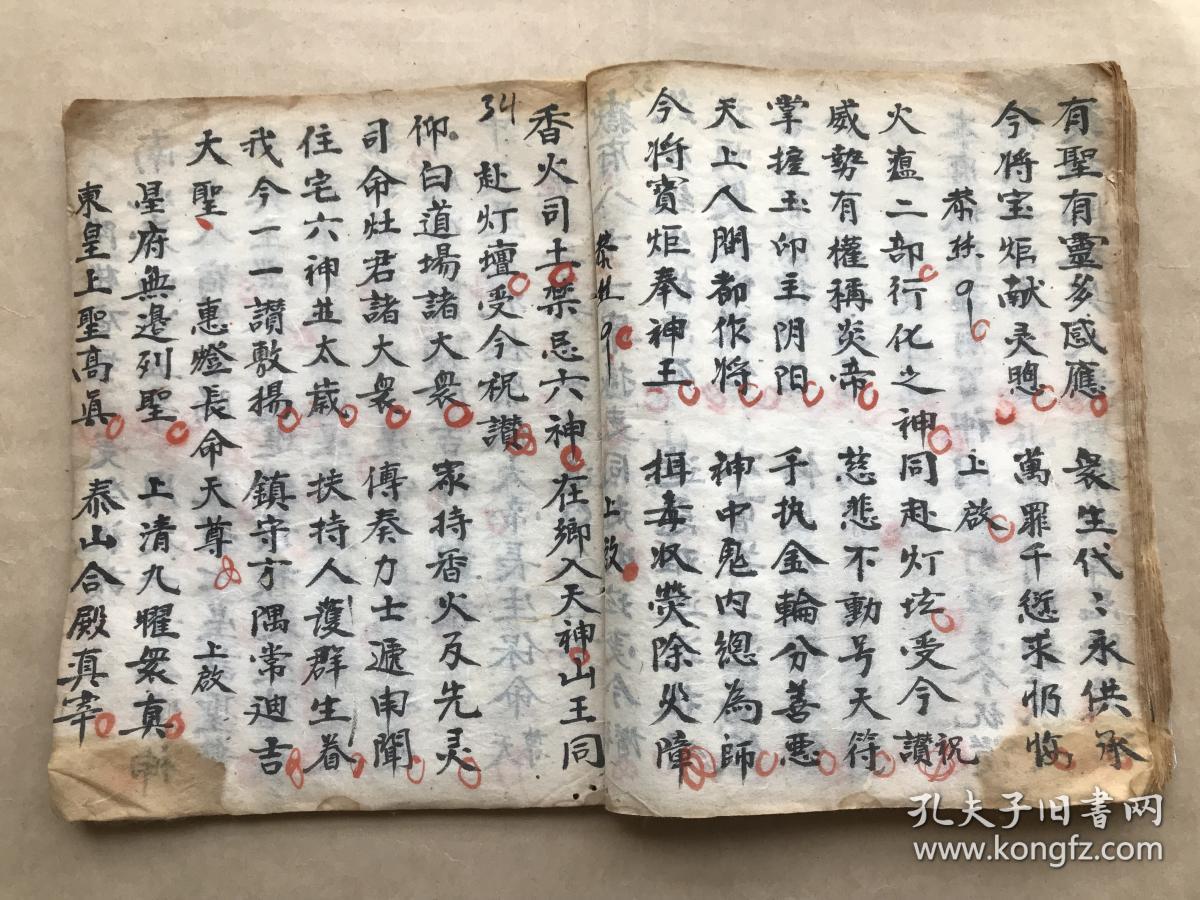 有聖有靈多感應 衆生代〻永供承
今将宝炬献灵聰 萬罪千愆求忏悔
恭妹 上啟
火瘟二部行化之神同赴灯坛受今讃祝
威勢有權稱炎帝 慈悲不動号天符
掌握玉印主阴阳 手执金輪分善恶
天上人間都作将 神中鬼内總為師
今将寶炬奉神王 摄毒收熒除災障
恭 上啟
香火司土禁忌六神在鄉入天神山王同
赴灯壇受今祝讃
34
仰白道場諸大衆 家持香火及先灵
司命灶君諸大衆 傳奏力士遞申聞
住宅六神並太歲 扶持人護群生眷
我今一一讃敷揚 鎮守方隅常迪吉
大聖 惠燈長命天尊 上啟
星府無邊列聖 上清九曜衆真
東皇上聖高真 泰山合殿真宰
孔夫子旧书网
www.kongfz.com